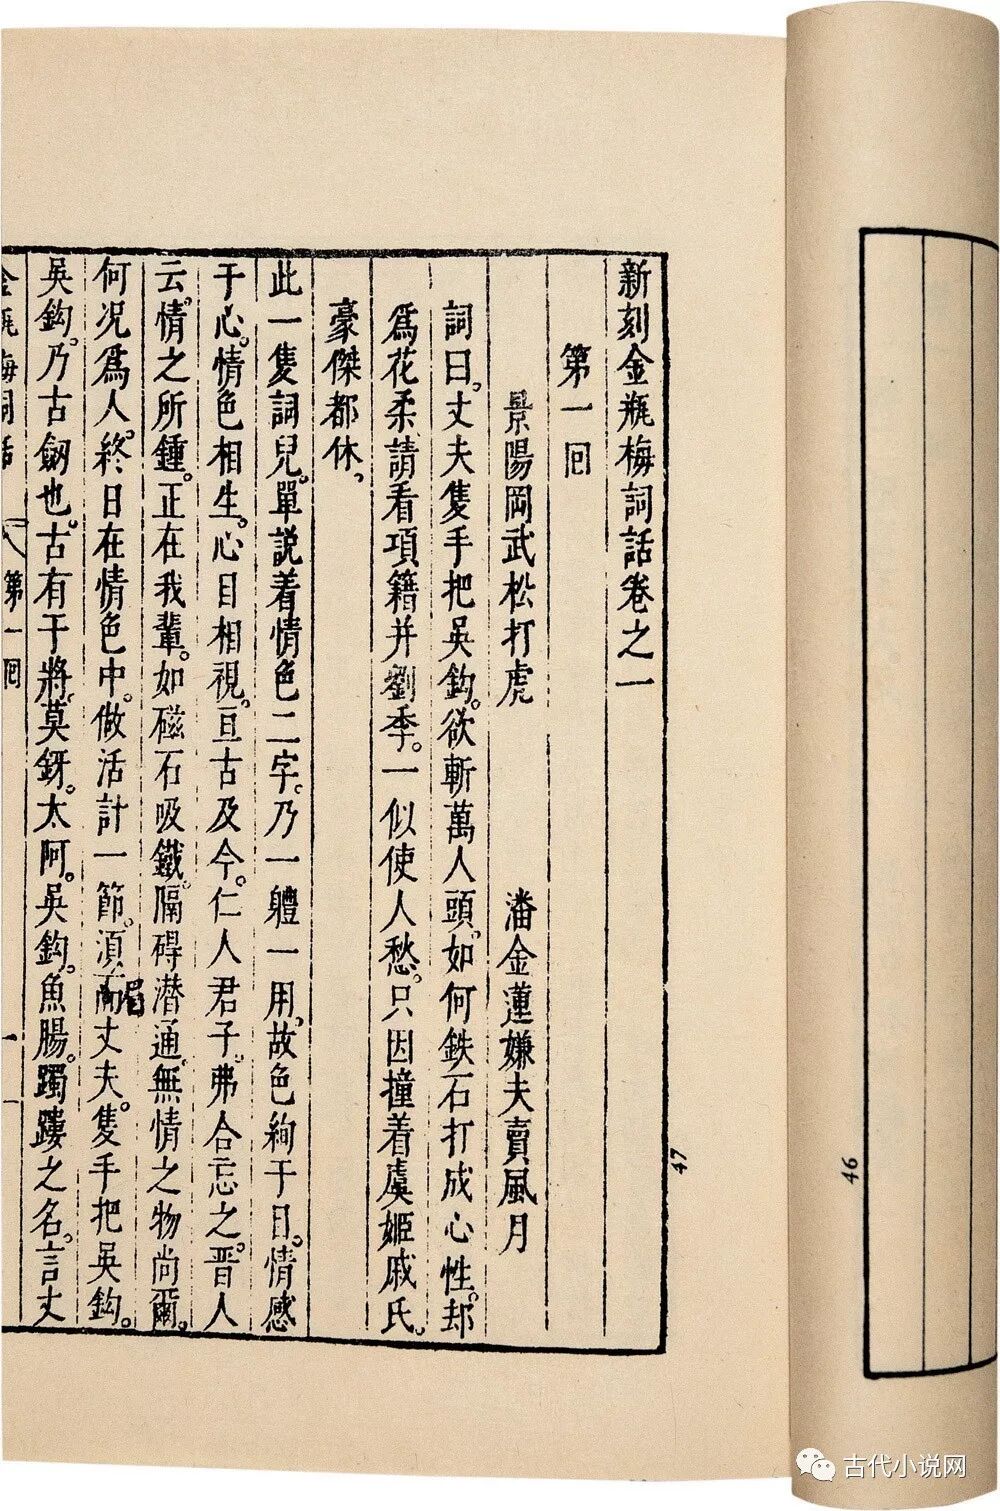 新刻金瓶梅詞話卷之一
第一回
景陽岡武松打虎　潘金蓮嫌夫賣風月
詞曰。丈夫隻手把吳鈎。欲斬萬人頭。如何鉄石打成心性。却
爲花柔請看項籍并劉季。一似使人愁。只因撞着虞姬戚氏。
豪傑都休。
此一隻詞兒。單說着情色二字。乃一體一用。故色絢于目。情感
于心。情色相生。心目相視。亘古及今。仁人君子。弗合忘之。晋人
云。情之所鍾。正在我輩。如磁石吸鐵。隔碍潜通。無情之物尚爾。
何况爲人。終日在情色中。做活計一節。須而眉丈夫。隻手把吳鈎。
吳鈎。乃古劔也。古有干將。莫釾。太阿。吳鈎。魚腸。躅鏤之名。言丈
金瓶梅詞話　第一回　一
47
46
古代小说网